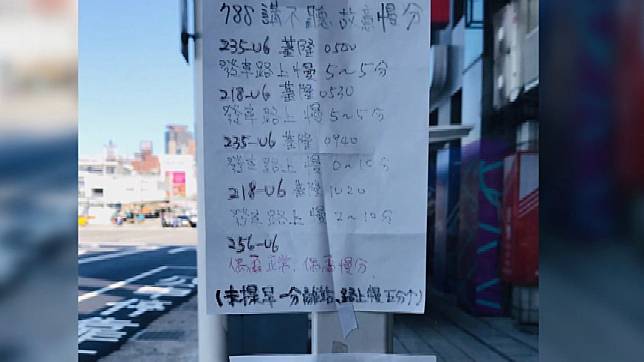 788 講不聽、故意慢分
235-U6 基隆 0500
發車路上慢 5~5分
218-U6 基隆 0530
發車路上慢 5~5分
235-U6 基隆 0940
發車路上慢 0~10分
218-U6 基隆 1020
發車路上慢 2~10分
256-U6
偶爾正常、偶爾慢分.
(未提早一分離站、路上慢五分)